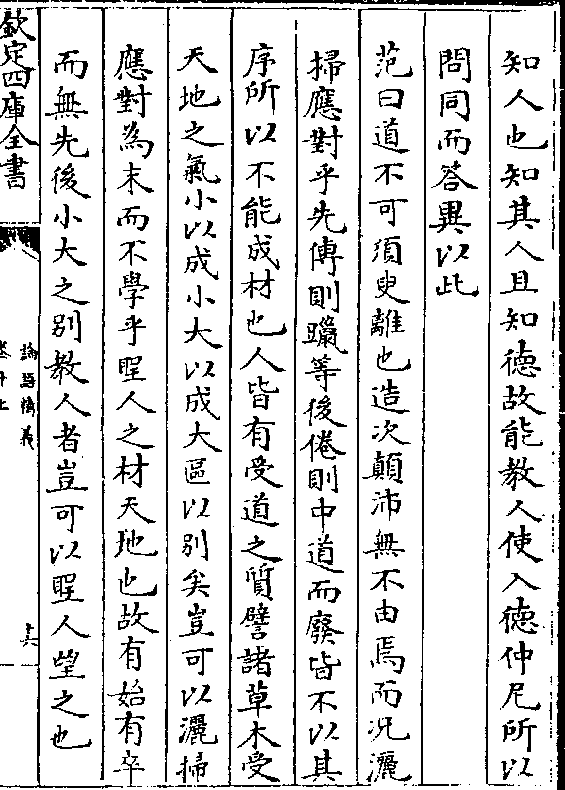 知人也知其人且知德故能教人使入德仲尼所以
問同而答異以此
范曰道不可須臾離也造次顛沛無不由焉而况灑
掃應對乎先傳則躐等後倦則中道而廢皆不以其
序所以不能成材也人皆有受道之質譬諸草木受
天地之氣小以成小大以成大區以别矣豈可以灑掃
應對為末而不學乎聖人之材天地也故有始有卒
而無先後小大之别教人者豈可以聖人望之也
欽定四庫全書
論語精義
卷十上